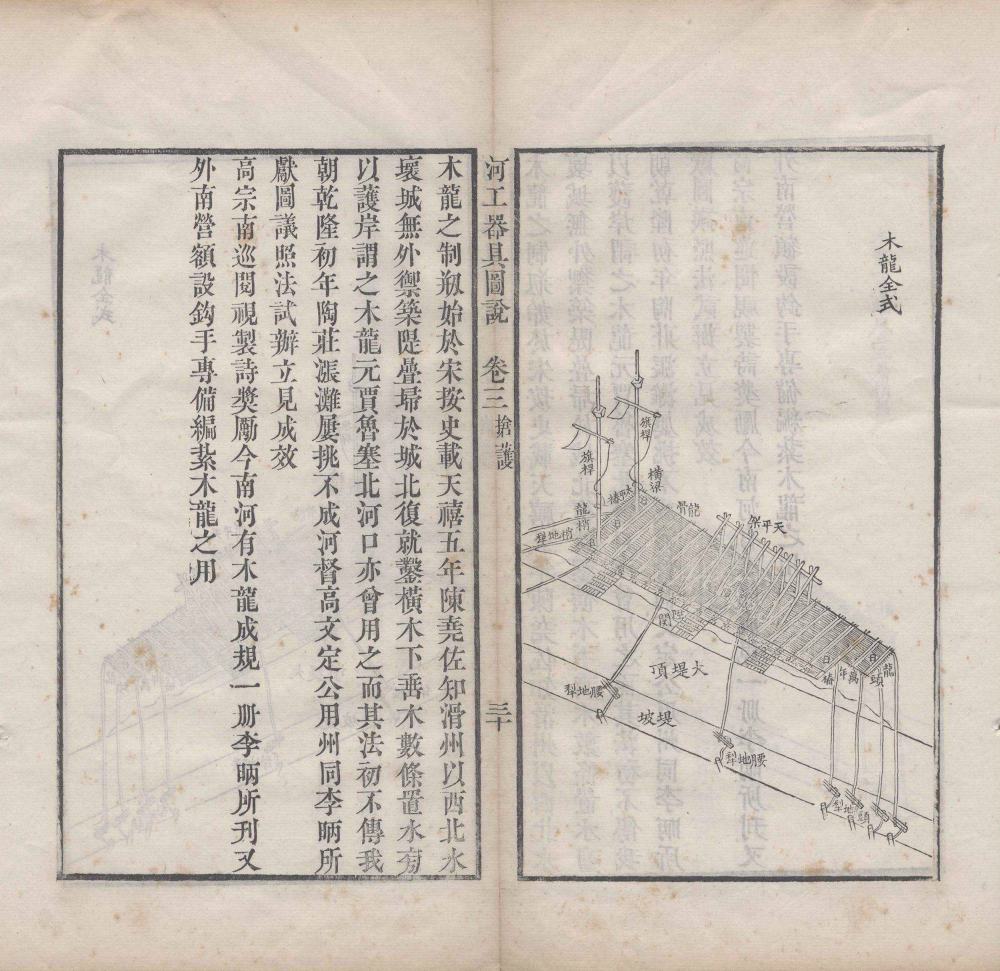 木龍全式
旗桿
旗桿
橫梁
龍骨
天平架
龍梢
梢地犁
大堤頂
堤坡
腰地犁
腰地犁
龍頭
萬年樁
頭地犁
河工器具圖說 卷三 搶護 三十
木龍之制刱始於宋按史載天禧五年陳堯佐知滑州以西北水
壞城無外禦築隄疊埽於城北復就鑿橫木下垂木數條置水旁
以護岸謂之木龍元賈魯塞北河口亦曾用之而其法初不傳我
朝乾隆初年陶莊漲灘屢挑不成河督高文定公用州同李昞所
獻圖議照法試辦立見成效
高宗南巡閱視製詩獎勵今南河有木龍成規一册李昞所刊又
外南營額設鈎手專備編紮木龍之用